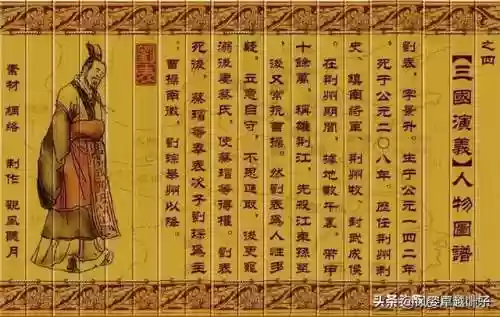 之四
【三國演義】人物圖譜
劉表，字景升。生于公元一四二年
，死于公元二〇八年。歷任荊州刺
史、鎮南將軍、荊州牧，封武成侯
。在荊州期間，據地數千裏，帶甲
十餘萬，稱雄荊江，先殺江東孫堅
，後又常抗曹操。然劉表為人性多
疑。立意自守，不思進取，後更寵
溺後妻蔡氏，使蔡瑁等得權。劉表
死後，蔡瑁等奉表次子劉琮為主
。曹操南徵，劉琮舉州以降。
劉表
素材 網絡 制作 觀風聽月